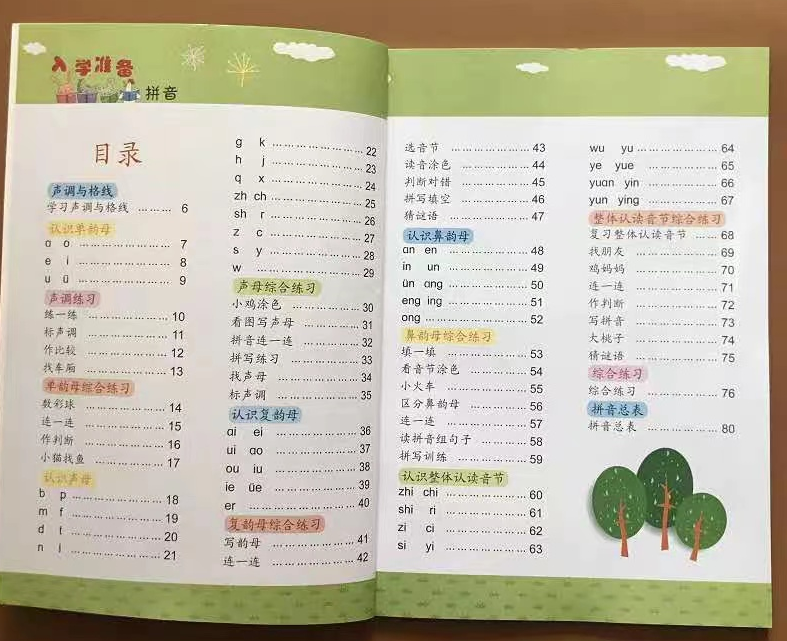 入学准备
拼音
目录
声调与格线
学习声调与格线 ……… 6
认识单韵母
ɑ o ……………………… 7
e i ……………………… 8
u ü ……………………… 9
声调练习
练一练 …………………… 10
标声调 …………………… 11
作比较 …………………… 12
找车厢 …………………… 13
单韵母综合练习
数彩球 …………………… 14
连一连 …………………… 15
作判断 …………………… 16
小猫找鱼 ………………… 17
认识声母
b p ……………………… 18
m f ……………………… 19
d t ……………………… 20
n l ……………………… 21
g k ……………………… 22
h j ……………………… 23
q x ……………………… 24
zh ch …………………… 25
sh r …………………… 26
z c ……………………… 27
s y ……………………… 28
w ……………………… 29
声母综合练习
小鸡涂色 ………………… 30
看图写声母 ……………… 31
拼音连一连 ……………… 32
拼写练习 ………………… 33
找声母 …………………… 34
标声调 …………………… 35
认识复韵母
ɑi ei …………………… 36
ui ɑo …………………… 37
ou iu …………………… 38
ie üe …………………… 39
er ……………………… 40
复韵母综合练习
写韵母 …………………… 41
连一连 …………………… 42
选音节 …………………… 43
读音涂色 ………………… 44
判断对错 ………………… 45
拼写填空 ………………… 46
猜谜语 …………………… 47
认识鼻韵母
ɑn en …………………… 48
in un …………………… 49
ün ɑng ………………… 50
eng ing ………………… 51
ong ……………………… 52
鼻韵母综合练习
填一填 …………………… 53
看音节涂色 ……………… 54
小火车 …………………… 55
区分鼻韵母 ……………… 56
连一连 …………………… 57
读拼音组句子 …………… 58
拼写训练 ………………… 59
认识整体认读音节
zhi chi ………………… 60
shi ri ………………… 61
zi ci …………………… 62
si yi …………………… 63
wu yu …………………… 64
ye yue ………………… 65
yuɑn yin ……………… 66
yun ying ……………… 67
整体认读音节综合练习
复习整体认读音节 ……… 68
找朋友 …………………… 69
鸡妈妈 …………………… 70
连一连 …………………… 71
作判断 …………………… 72
写拼音 …………………… 73
大桃子 …………………… 74
猜谜语 …………………… 75
综合练习
综合练习 ………………… 76
拼音总表
拼音总表 ………………… 80